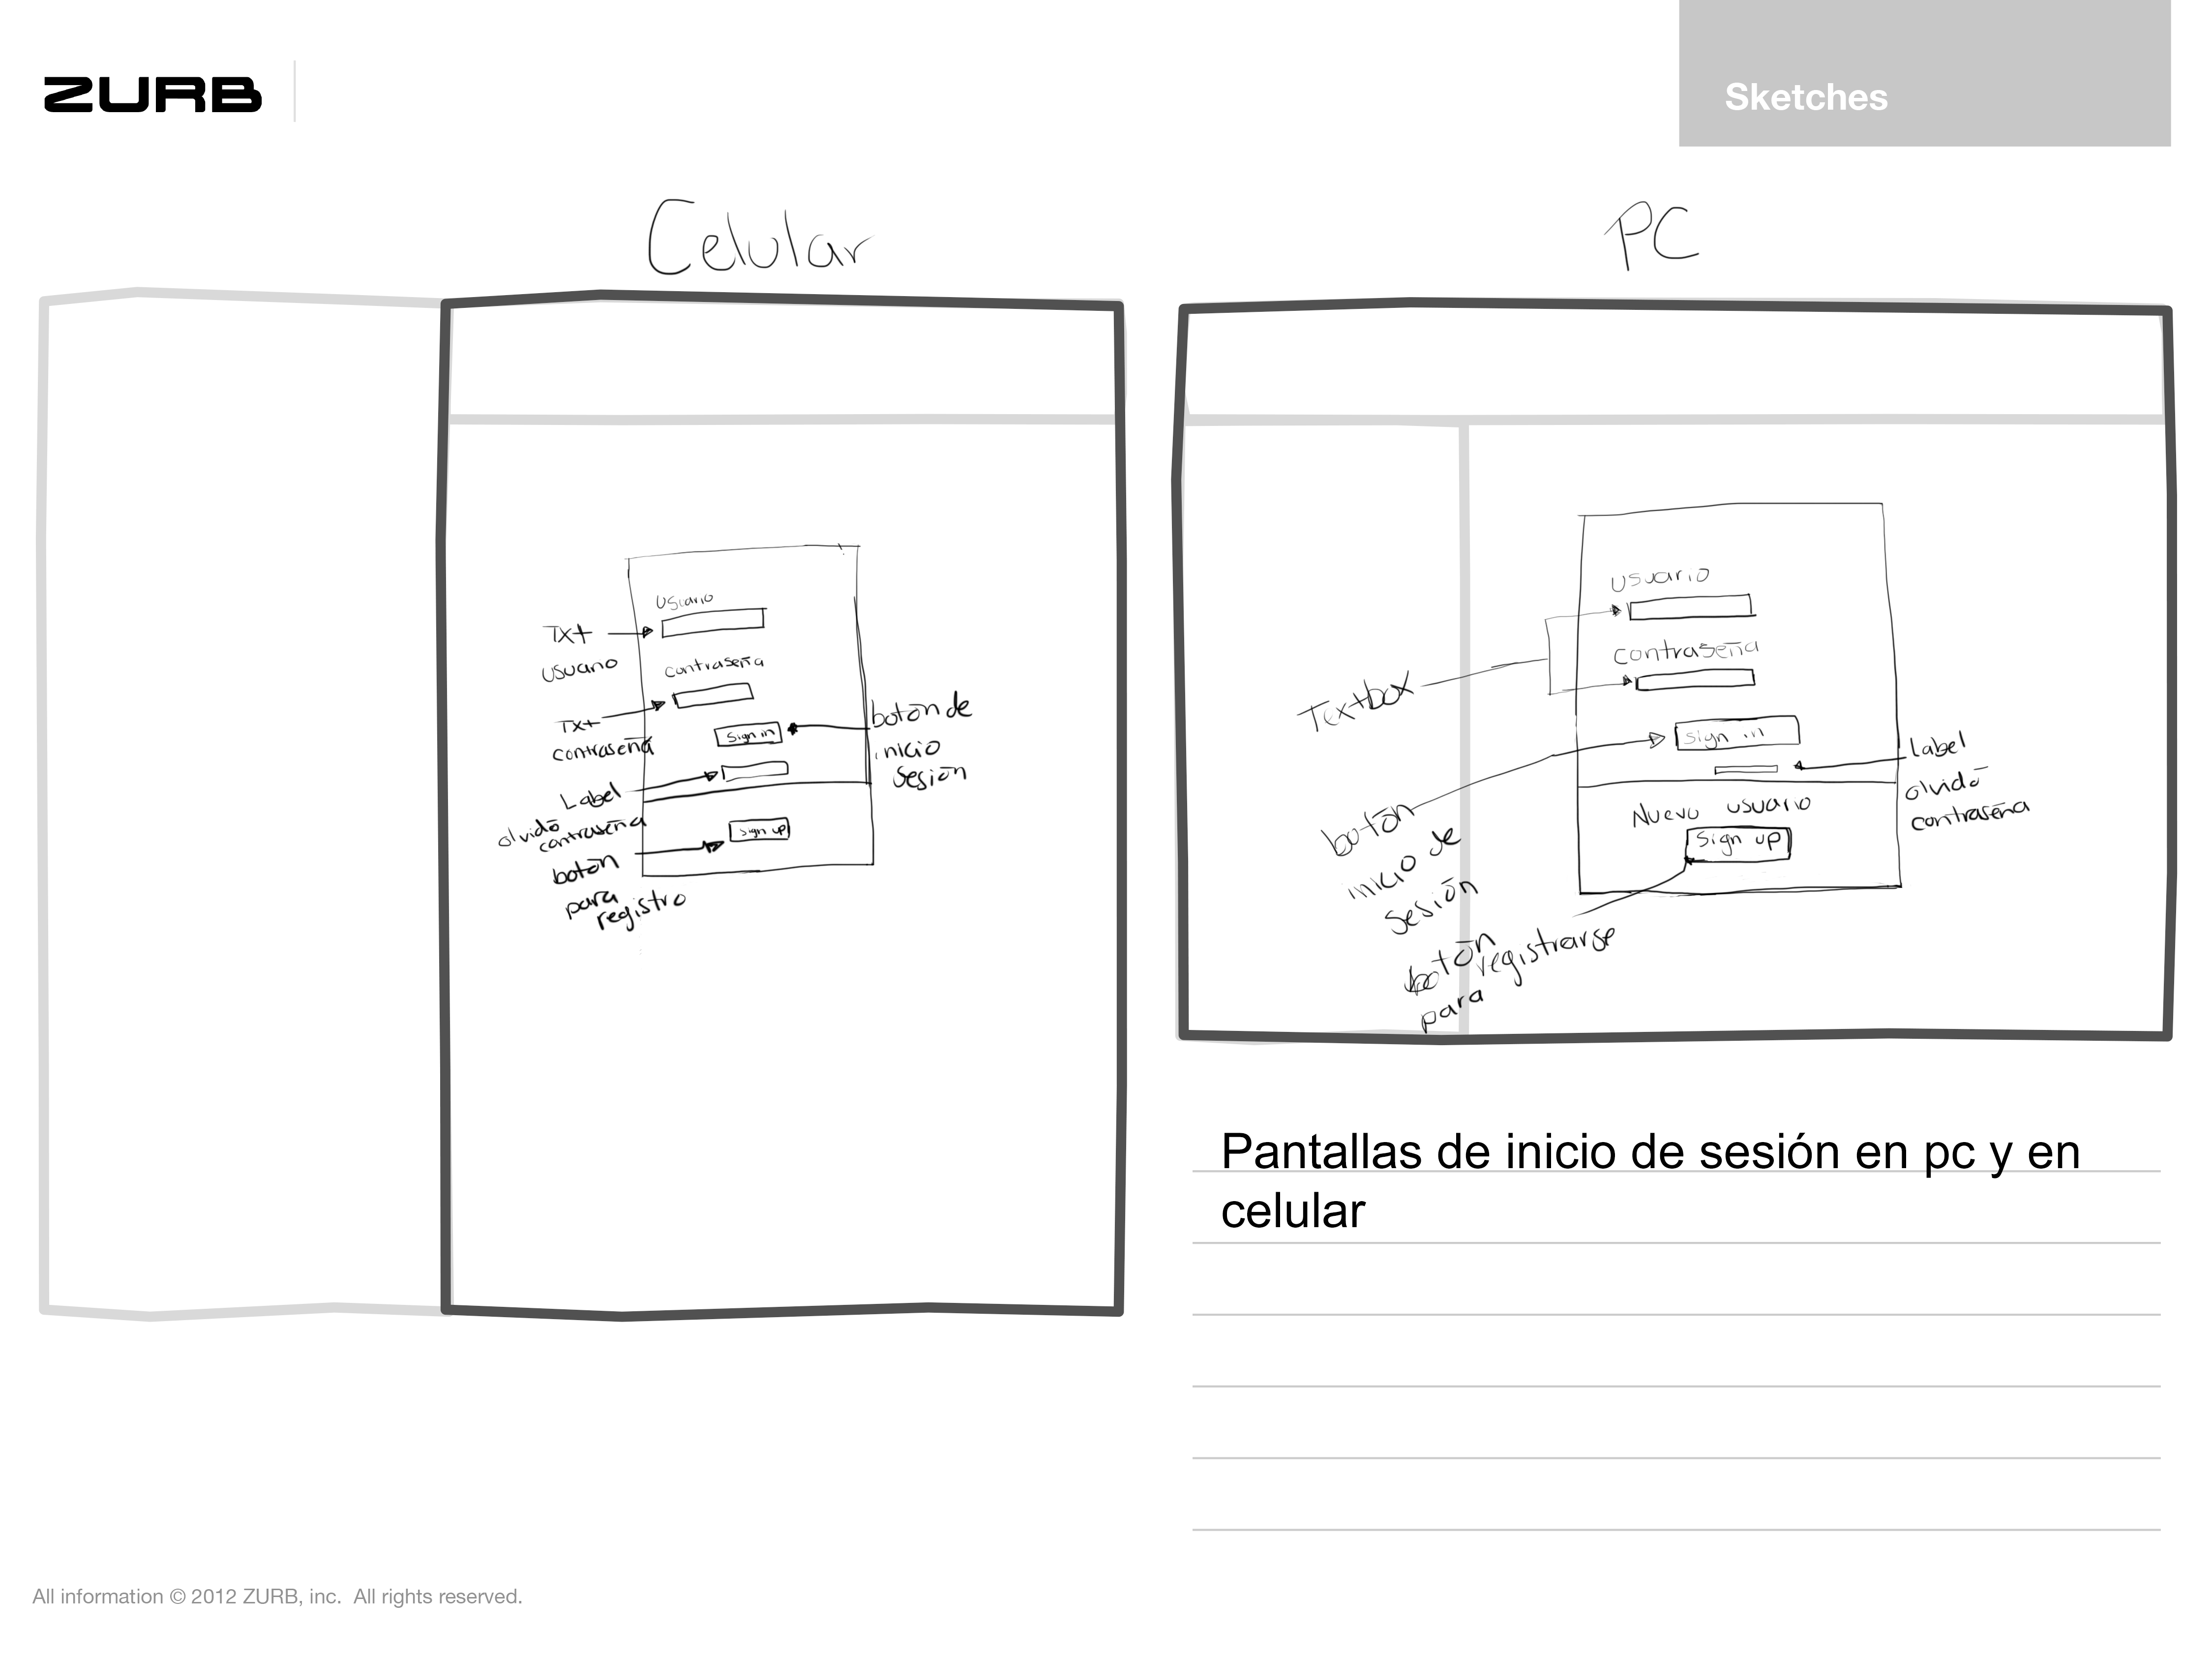 ZURB
Sketches
Celular
usuario
Txt
usuario
contraseña
Txt
contraseña
Sign in
botōn de
inicio
sesiōn
Label
olvidō
contraseña
Sign up
botōn
para
registro
PC
usuario
contraseña
Textbox
sign in
Label
olvidō
contraseña
botōn
inicio de
sesiōn
Nuevo usuario
Sign up
botōn
para registrarse
Pantallas de inicio de sesión en pc y en
celular
All information © 2012 ZURB, inc. All rights reserved.